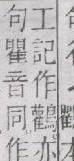 工記作鸛亦
句瞿音同作